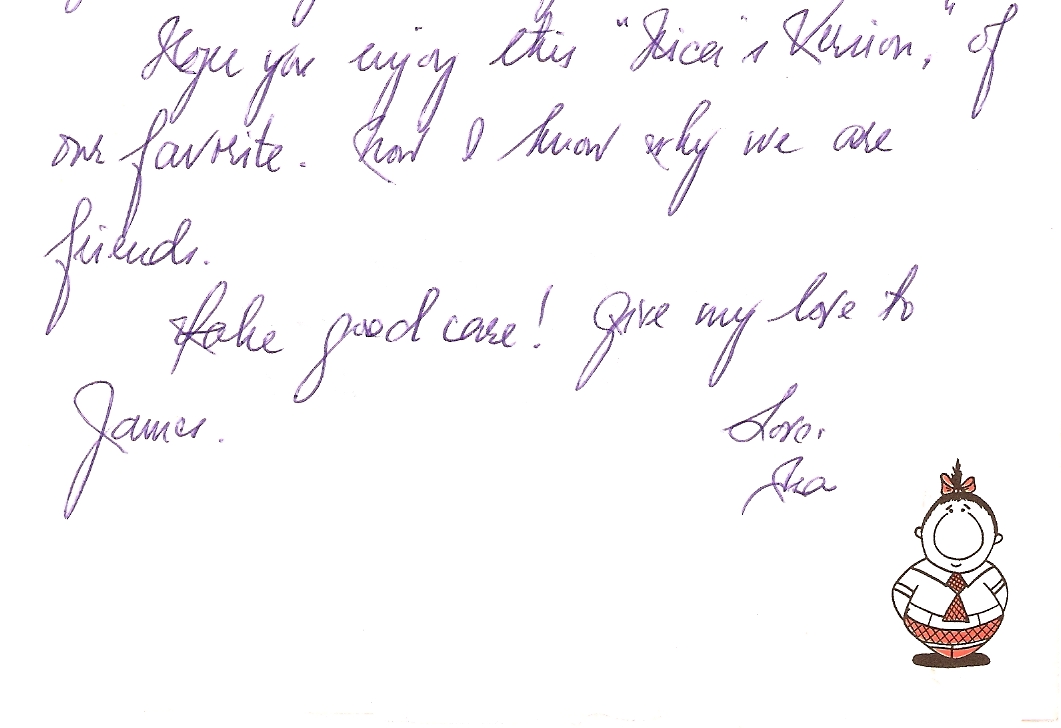 Hope you enjoy this "Version," of
our favorite. Now I know why we are
friends.
Take good care! Give my love to
James.
Love,